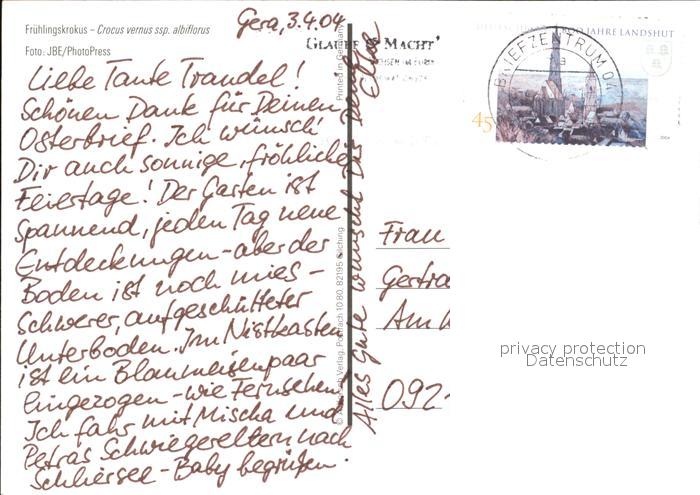 Frühlingskrokus – Crocus vernus ssp. albiflorus
Foto: JBE/PhotoPress
Gera, 3.4.04
Liebe Tante Traudel!
Schönen Dank für Deinen
Osterbrief. Ich wünsch'
Dir auch sonnige, fröhliche
Feiertage! Der Garten ist
spannend, jeden Tag neue
Entdeckungen - aber der
Boden ist noch mies -
Schwerer, aufgeschütteter
Unterboden. Im Nistkasten
ist ein Blaumeisenpaar
eingezogen - wie Fernsehen.
Ich fahr mit Mischa und
Petras Schwiegereltern nach
Schliersee - Baby begrüßen.
Alles Gute wünscht Dir Deine
Printed in Germany
Verlag, Postfach 10 80, 82195 Gilching
GLAUBE & MACHT'
BRIEFZENTRUM 04
JAHRE LANDSHUT
45
Frau
Gertra
Am
092
privacy protection
Datenschutz